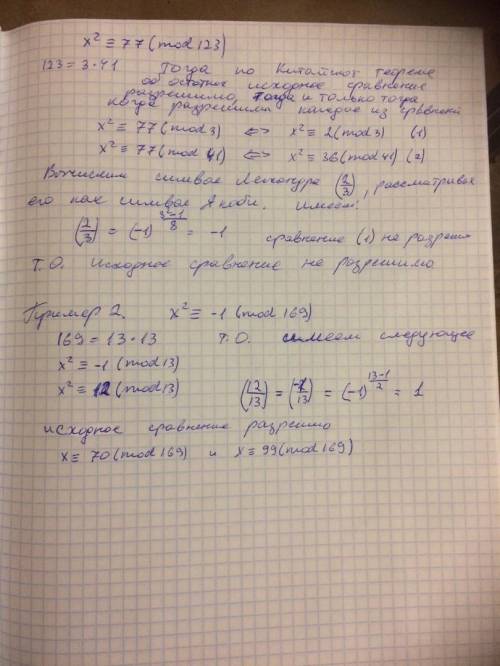 x² ≡ 77 (mod 123)
123 = 3·41 Тогда по Китайской теореме
об остатках исходное сравнение
разрешимо, тогда и только тогда
когда разрешимы каждое из сравнений
x² ≡ 77 (mod 3) <=> x² ≡ 2 (mod 3) (1)
x² ≡ 77 (mod 41) <=> x² ≡ 36 (mod 41) (2)
Вычислим символ Лежандра (2/3), рассматривая
его как символ Якоби. Имеем:
(2/3) = (-1)^((3²-1)/8) = -1 сравнение (1) не разреши
Т.О. исходное сравнение не разрешимо
Пример 2. x² ≡ -1 (mod 169)
169 = 13·13 Т.О. имеем следующее
x² ≡ -1 (mod 13)
x² ≡ 12 (mod 13) (12/13) = (-1/13) = (-1)^((13-1)/2) = 1
исходное сравнение разрешимо
x ≡ 70 (mod 169) и x ≡ 99 (mod 169)